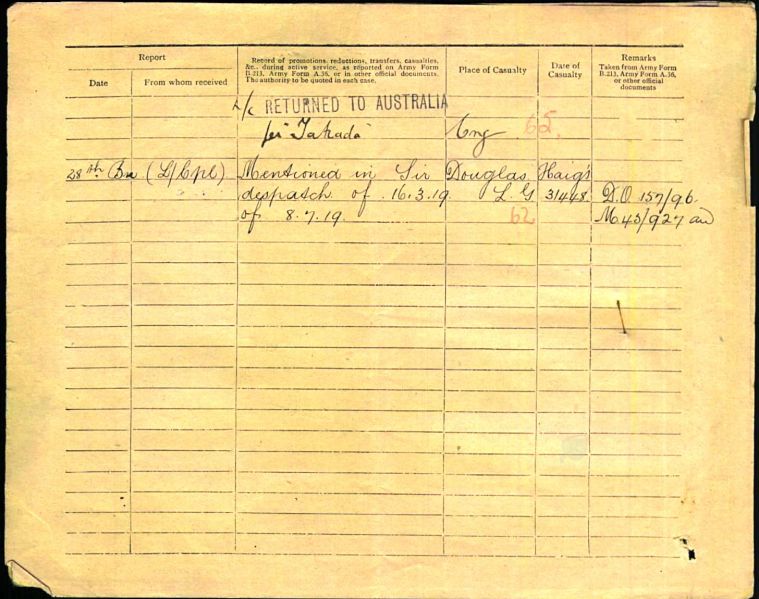 Report
Date
From whom received
Record of promotions, reductions, transfers, casualties,
&c., during active service, as reported on Army Form
B.213, Army Form A.36, or in other official documents.
The authority to be quoted in each case.
Place of Casualty
Date of
Casualty
Remarks
Taken from Army Form
B.213, Army Form A.36,
or other official
documents
RETURNED TO AUSTRALIA
per "Takada" Eng 65.
28th Bn (L/Cpl) Mentioned in Sir Douglas Haig's
despatch of 16.3.19. L.G 31448. D.O. 157/96.
of 8.7.19. 62 M43/927